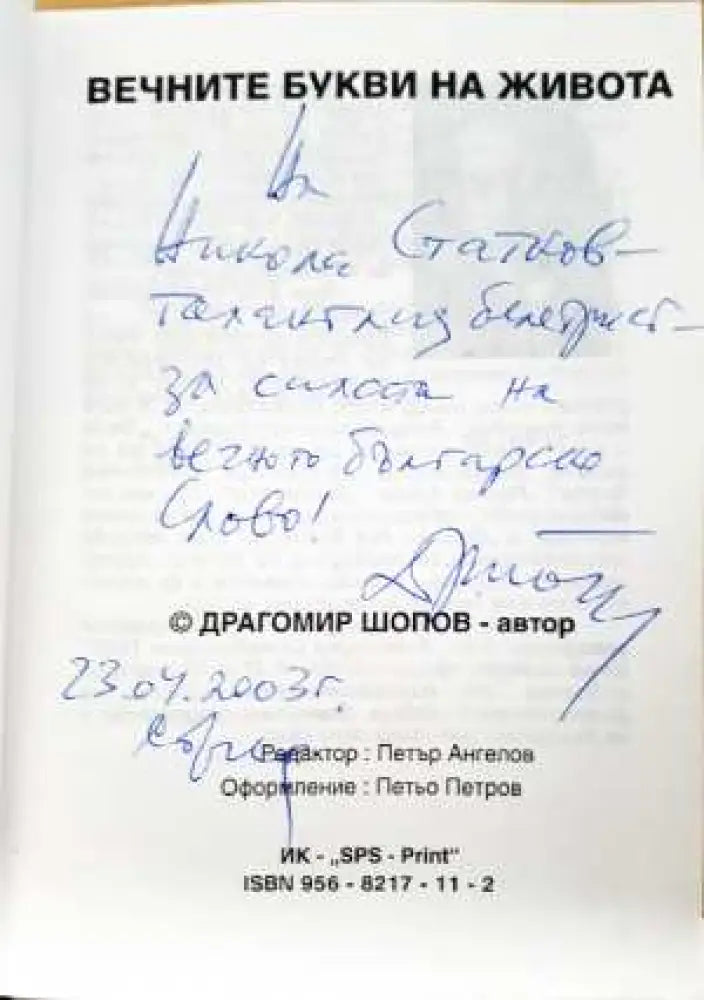 ВЕЧНИТЕ БУКВИ НА ЖИВОТА
На
Никола Статков –
талантлив белетрист –
за силата на
вечното българско
Слово!
© ДРАГОМИР ШОПОВ - автор
23.04.2003г.
София
Редактор : Петър Ангелов
Оформление : Петьо Петров
ИК - „SPS - Print"
ISBN 956 - 8217 - 11 - 2